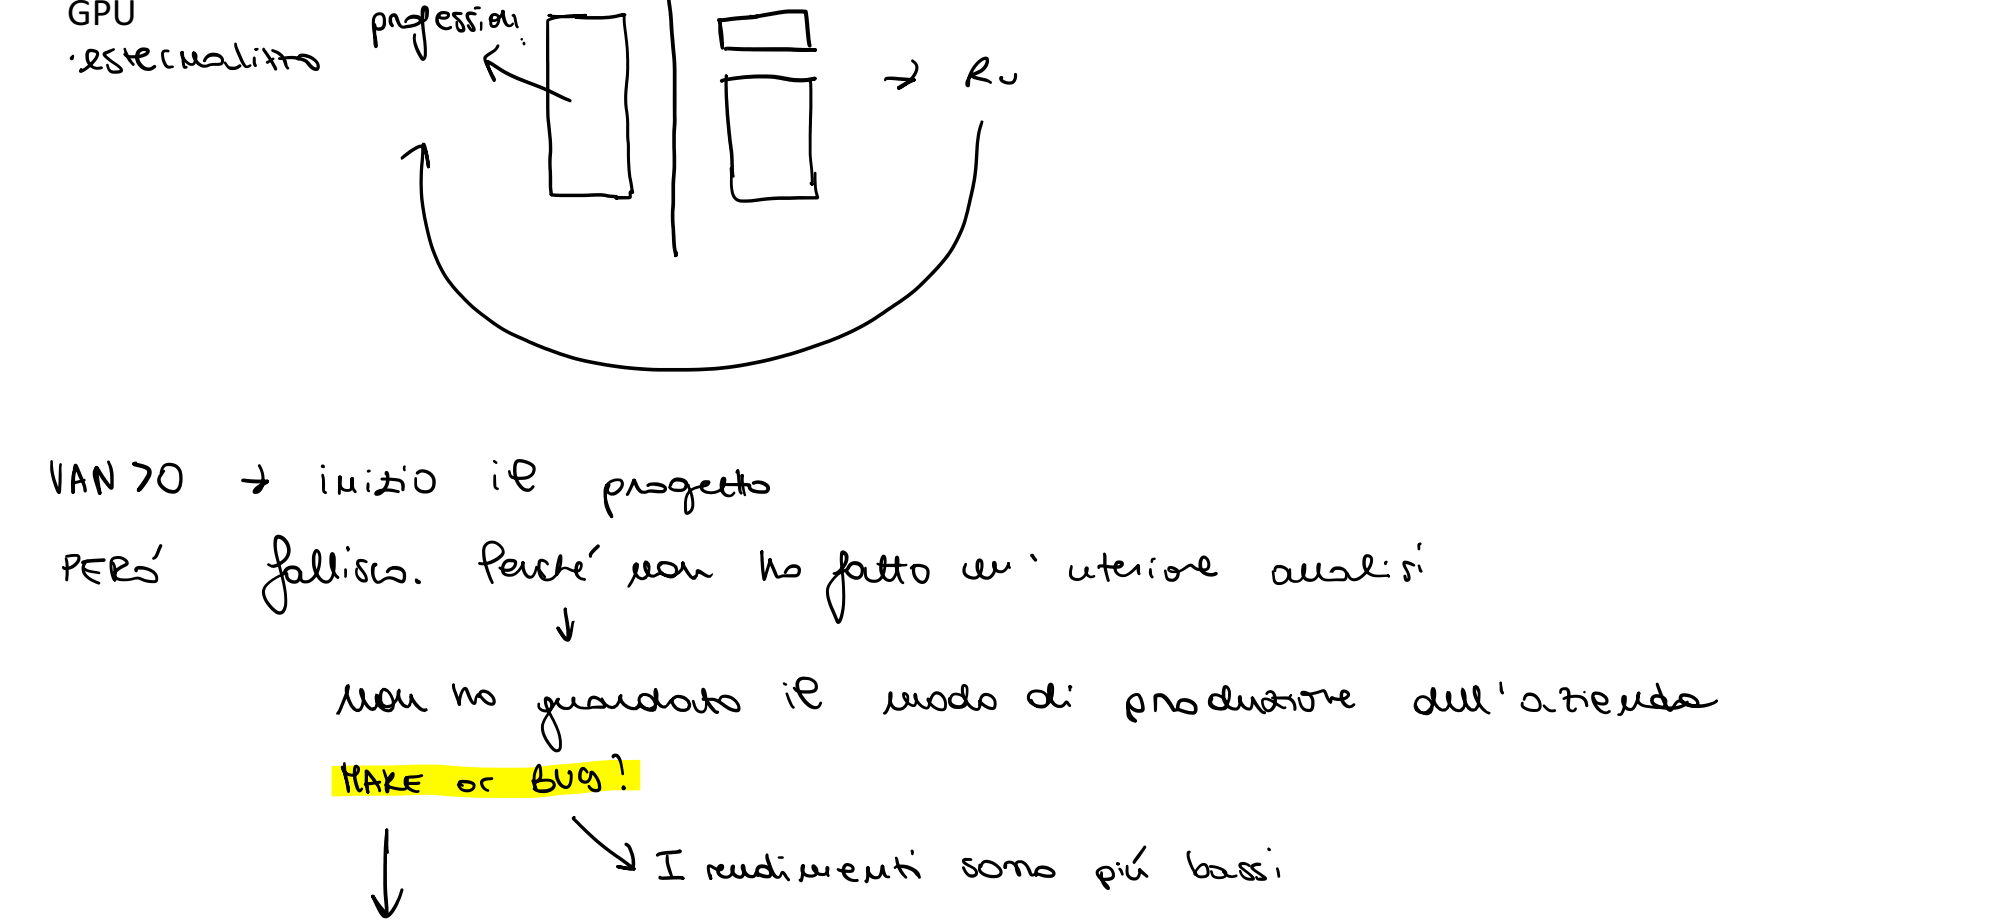 GPU
professioni
·esternalizzo
→ Ru
VAN>0 → inizio il progetto
PERÓ fallisco. Perché non ho fatto un'uteriore analisi
non ho guardato il modo di produzione dell'azienda
MAKE or BUY?
I rendimenti sono piú bassi